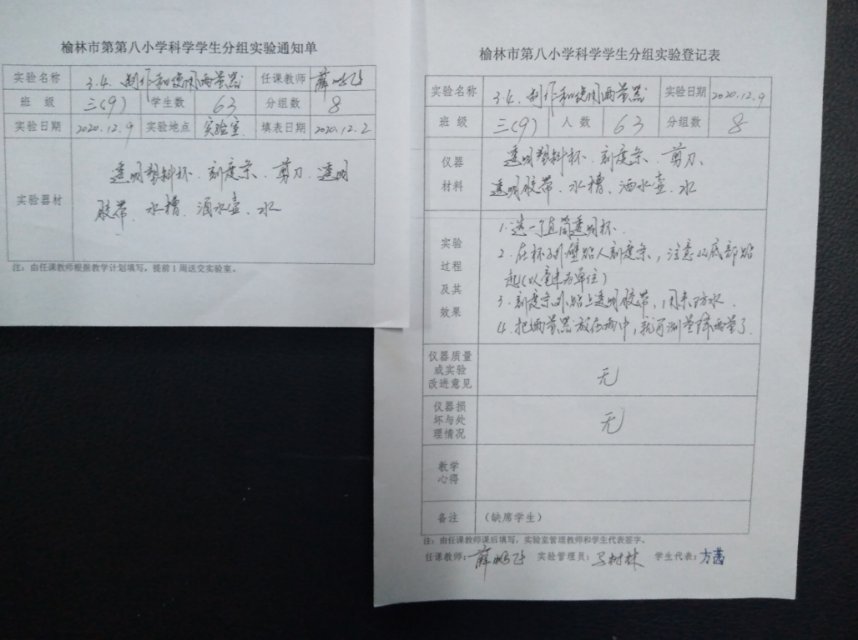 榆林市第第八小学科学学生分组实验通知单
实验名称 3.4.制作和使用雨量器 任课教师 薛
班级 三(9) 学生数 63 分组数 8
实验日期 2020.12.9 实验地点 实验室 填表日期 2020.12.2
实验器材
透明塑料杯、刻度条、剪刀、透明
胶带、水槽、洒水壶、水
注:由任课教师根据教学计划填写,提前1周送交实验室。
榆林市第八小学科学学生分组实验登记表
实验名称 3.4.制作和使用雨量器 实验日期 2020.12.9
班级 三(9) 人数 63 分组数 8
仪器材料
透明塑料杯、刻度条、剪刀、
透明胶带、水槽、洒水壶、水
实验过程及其效果
1.选一个直筒透明杯.
2.在杯子外壁贴人刻度条,注意从底部贴
起(以毫米为单位)
3.刻度条外贴上透明胶带,用来防水.
4.把雨量器放在雨中,就可测量降雨量了.
仪器质量或实验改进意见 无
仪器损坏与处理情况 无
教学心得
备注 (缺席学生)
注:由任课教师课后填写,实验室管理教师和学生代表签字。
任课教师:薛 实验管理员:马树林 学生代表:方